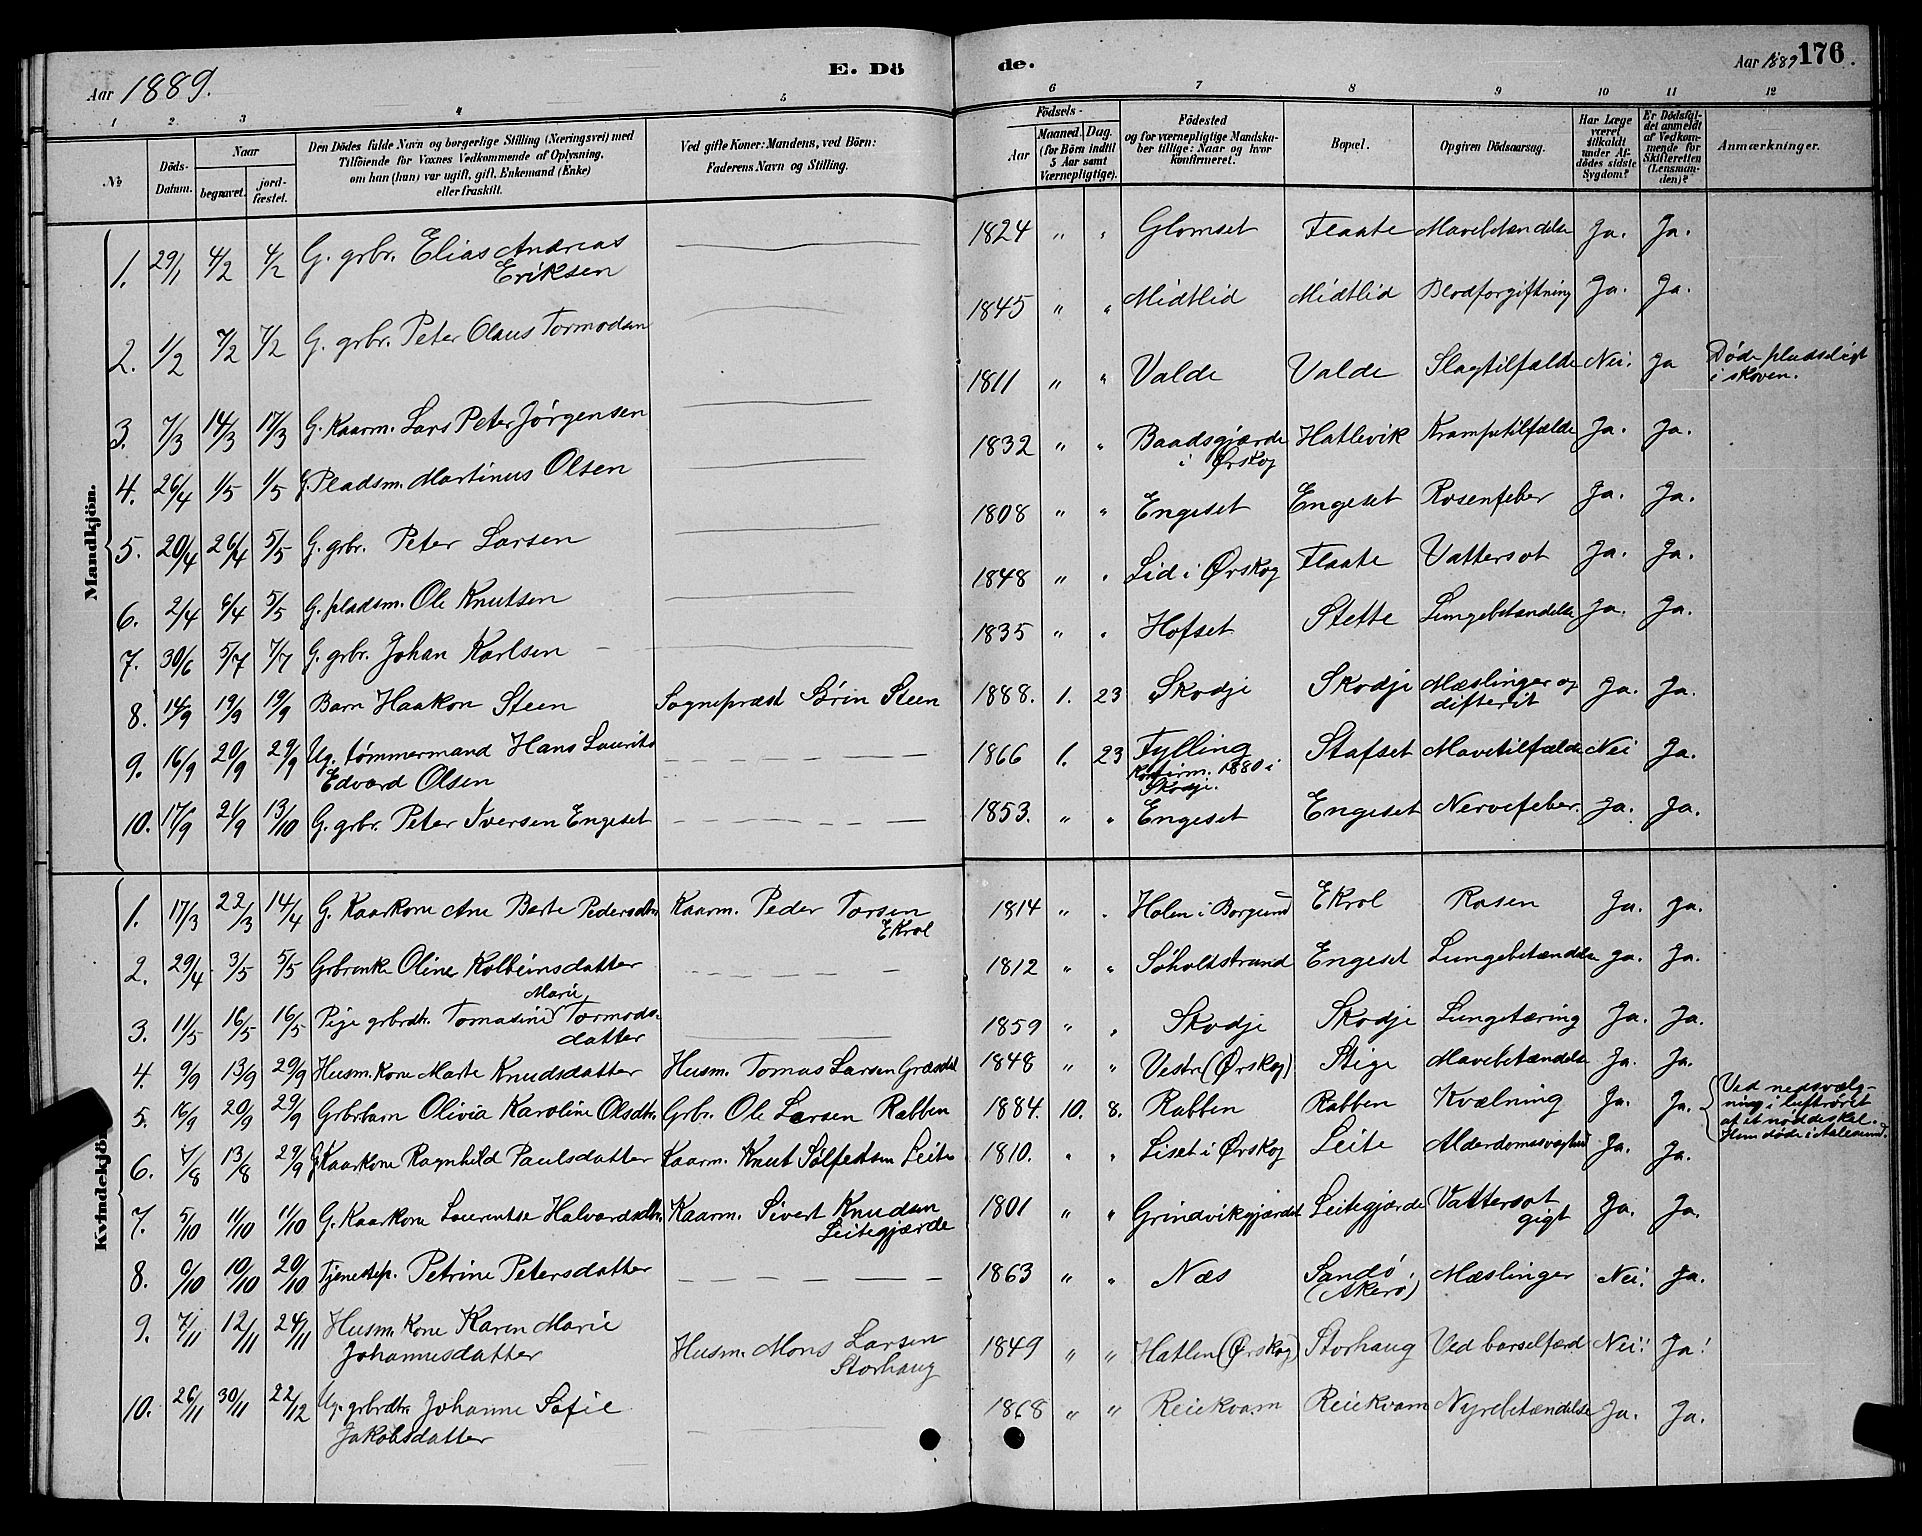 Aar 1889. E. Dö de. Aar 1889 176.
1 2. 3 4 5 6 7 8 9 10 11 12
№ Döds-Datum. Naar begravet. jord-fæstet. Den Dödes fulde Navn og borgerlige Stilling (Næringsvei) med Tilföiende for Voxnes Vedkommende af Oplysning, om han (hun) var ugift, gift, Enkemand (Enke) eller fraskilt. Ved gifte Koner: Mandens, ved Börn: Faderens Navn og Stilling. Födsels- Aar Maaned. Dag. (for Börn indtil 5 Aar samt Værnepligtige). Födested og for værnepligtige Mandska-ber tillige: Naar og hvor konfirmeret. Bopæl. Opgiven Dödsaarsag. Har Læge været tilkaldt under Af-dödes sidste Sygdom? Er Dödsfal-det anmeldt af Vedkom-mende for Skifteretten (Lensman-den)? Anmærkninger.
Mandkjön.
1. 29/1 4/2 4/2 G. grbr. Elias Andreas Eriksen 1824 " " Glomset Flaate Mavebetændelse Ja. Ja.
2. 1/2 7/2 7/2 G. grbr. Peter Olaus Tormodsn 1845 " " Midtlid Midtlid Blodforgiftning Ja. Ja.
3. 7/3 14/3 17/3 G. Kaarm. Lars Peter Jørgensen 1811 " " Valde Valde Slagtilfælde Nei. Ja Døde pludseligt i skoven.
4. 26/4 1/5 1/5 G. Pladsm. Martinus Olsen 1832 " " Baadsgjærde i Ørskog Hatlevik Krampetilfælde Ja. Ja.
5. 20/4 26/4 5/5 G. grbr. Peter Larsen 1808 " " Engeset Engeset Rosenfeber Ja. Ja.
6. 2/4 6/4 5/5 G. pladsm. Ole Knutsen 1848 " " Lid i Ørskog Flaate Vattersot Ja. Ja.
7. 30/6 5/7 7/7 G. grbr. Johan Karlsen 1835 " " Hofset Stette Lungebetændelse Ja. Ja.
8. 14/9 19/9 19/9 Barn Haakon Steen Sognepræst Sörin Steen 1888. 1. 23 Skodje Skodje Mæslinger og difterit Ja. Ja.
9. 16/9 20/9 29/9 Ug. tømmermand Hans Laurits Edvard Olsen 1866 1. 23 Fylling Konfirm. 1880 i Skodje. Stafset Mavetilfælde Nei Ja.
10. 17/9 21/9 13/10 G. grbr. Peter Iversen Engeset 1853. " " Engeset Engeset Nervefeber. Ja. Ja.
Kvindekjön.
1. 17/3 22/3 14/4 G. Kaarkone Ane Berte Pedersdtr. Kaarm. Peder Torsen Ekrol 1814 " " Holen i Borgund Ekrol Rosen Ja. Ja.
2. 29/4 3/5 5/5 Grbrenke Oline Kolbeinsdatter 1812 " " Søholdtstrand Engeset Lungebetændelse Ja. Ja.
3. 11/5 16/5 16/5 Pige grbrdtr. Tomasine Marie Tormods-datter 1859 " " Skodje Skodje Lungetæring Ja. Ja.
4. 9/9 13/9 29/9 Husm. Kone Marte Knudsdatter Husm. Tomas Larsen Græsdal 1848 " " Vestre (Ørskog) Stige Mavebetændelse Ja. Ja.
5. 16/9 20/9 29/9 Grbrbarn Olivia Karoline Olsdtr. Grbr. Ole Larsen Rabben 1884. 10. 8. Rabben Rabben Kvælning Ja. Ja. Ved nedsvælg-ning i luftrøret af et nøddeskal. Hun døde i Aalesund.
6. 7/8 13/8 29/9 G. Kaarkone Ragnhild Paulsdatter Kaarm. Knut Sølfestsen Leite 1810. " " Liset i Ørskog Leite Alderdomssvaghed Ja. Ja.
7. 5/10 11/10 11/10 G. Kaarkone Laurentse Halvardsdtr. Kaarm. Sivert Knudsen Leitegjærde 1801 " " Grindvikgjærdet Leitegjærde Vattersot gigt Ja. Ja.
8. 6/10 10/10 20/10 Tjenestep. Petrine Petersdatter 1863 " " Næs Sandø (Akerø) Mæslinger Nei. Ja.
9. 7/11 12/11 24/11 Husm. Kone Karen Marie Johannesdatter Husm. Mons Larsen Storhaug 1849 " " Hatlen (Ørskog) Storhaug Ved barselfærd Nei. Ja.
10. 26/11 30/11 22/12 Ug. grbrdtr. Johanne Sofie Jakobsdatter 1868 " " Reiekvam Reiekvam Nyrebetændelse Ja. Ja.